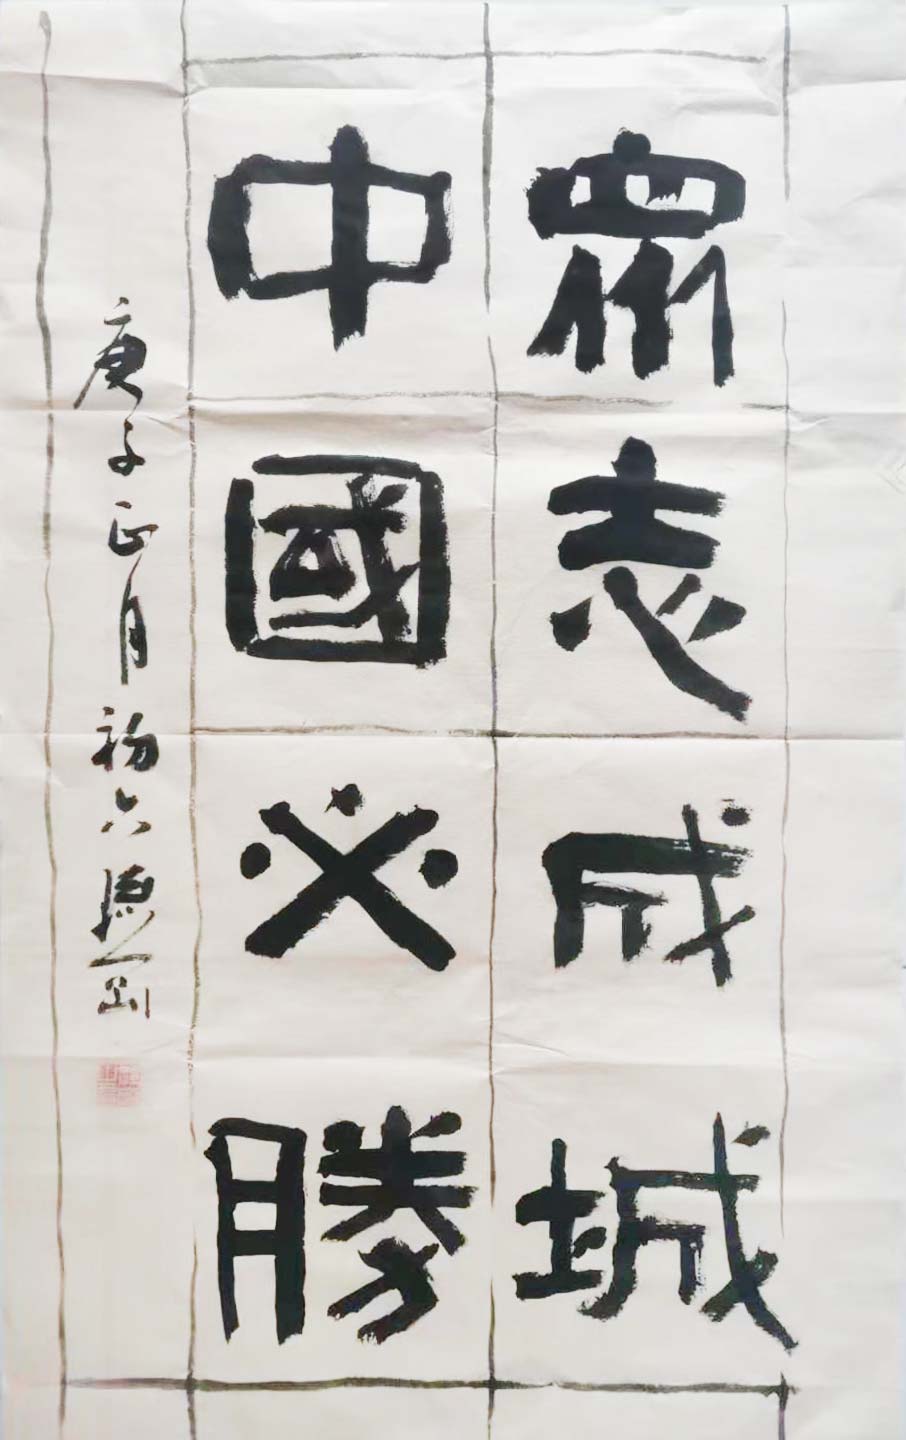 衆志成城
中國必勝
庚子正月初六